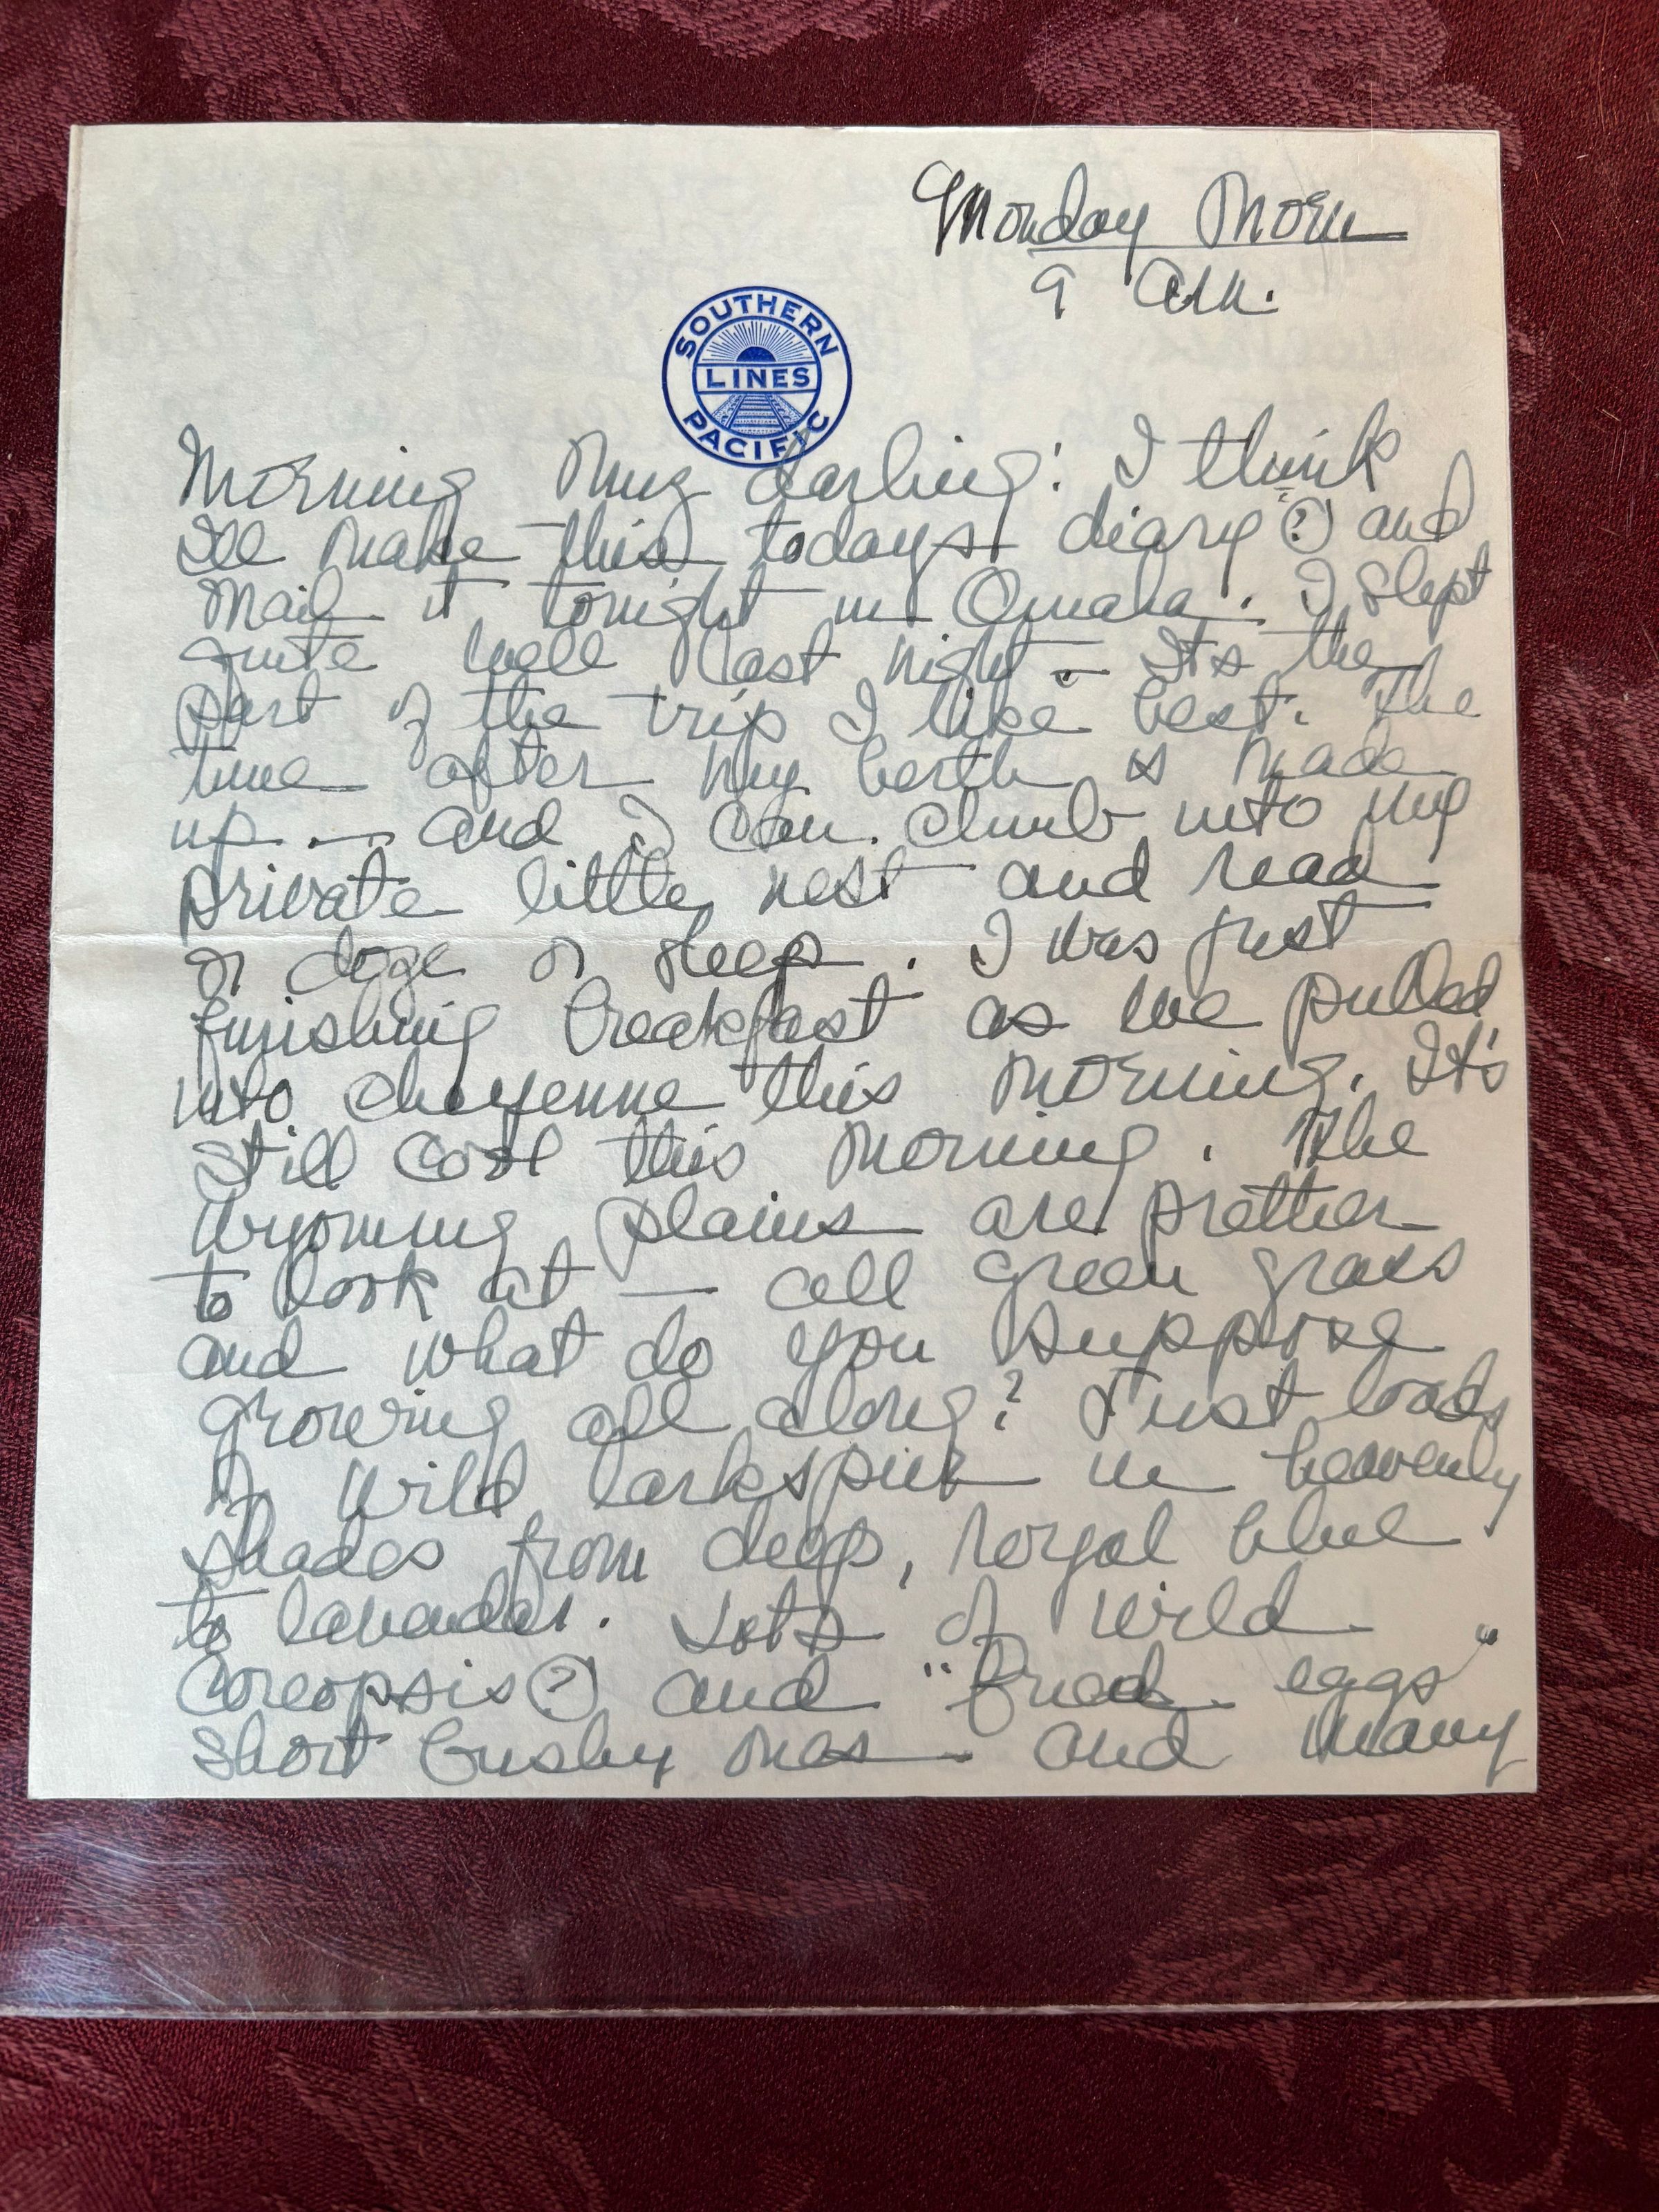 Monday Morn
9 A.M.
SOUTHERN
LINES
PACIFIC
Morning my darling: I think
I'll make this todays diary (?) and
mail it tonight in Omaha. I slept
quite well last night - It's the
part of the trip I like best. The
time after my berth is made
up — and I can climb into my
private little nest and read
or doze or sleep. I was just
finishing breakfast as we pulled
into Cheyenne this morning. It's
still cool this morning. The
Wyoming plains are prettier
to look at — all green grass
and what do you suppose
growing all along? Just loads
of wild larkspur in heavenly
shades from deep, royal blue
to lavendar. Lots of wild
coreopsis (?) and "fried eggs"
short bushy ones - and many